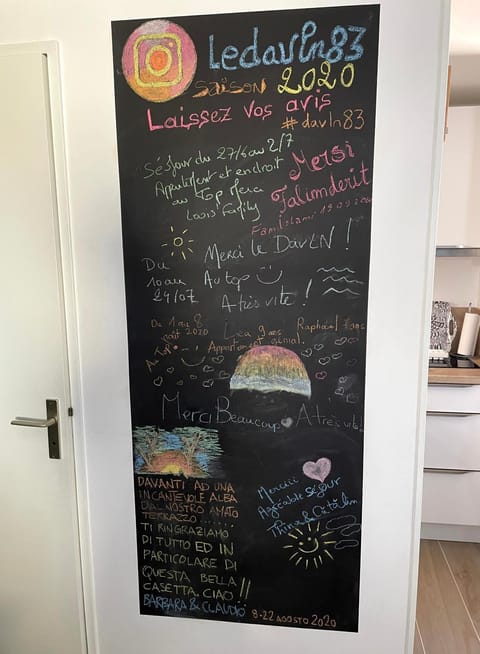 Ledavln83
SAISON 2020
Laissez vos avis
#davln83
Séjour du 27/6 au 2/7
Appartement et endroit
au top Merci
Family
Mersi
Falimderit
Merci le DavLN !
Du
10 au
24/07
Au top
A très vite !
Du 1 au 8
août 2020
Léa 9 ans
Raphaël
Appartement génial.
Merci Beaucoup
A très vite
DAVANTI AD UNA
INCANTEVOLE ALBA
DAL NOSTRO AMATO
TERRAZZO.......
TI RINGRAZIAMO
DI TUTTO ED IN
PARTICOLARE DI
QUESTA BELLA
CASETTA. CIAO !!
BARBARA & CLAUDIO
8-22 AGOSTO 2020
Merciii
Agréable séjour